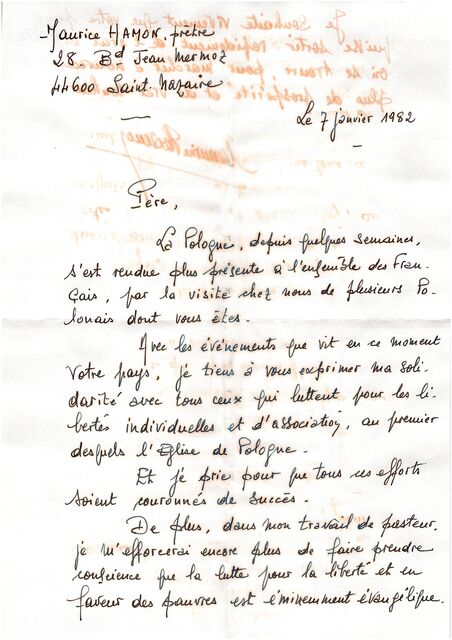 Maurice HAMON, prêtre
28 Bd Jean Mermoz
44600 Saint-Nazaire
Le 7 janvier 1982
Père,
La Pologne, depuis quelques semaines,
s'est rendue plus présente à l'ensemble des Fran-
çais, par la visite chez nous de plusieurs Po-
lonais dont vous êtes.
Avec les événements que vit en ce moment
votre pays, je tiens à vous exprimer ma soli-
darité avec tous ceux qui luttent pour les li-
bertés individuelles et d'association, au premier
desquels l'Eglise de Pologne.
Et je prie pour que tous ces efforts
soient couronnés de succès.
De plus, dans mon travail de pasteur,
je m'efforcerai encore plus de faire prendre
conscience que la lutte pour la liberté et en
faveur des pauvres est éminemment évangélique.